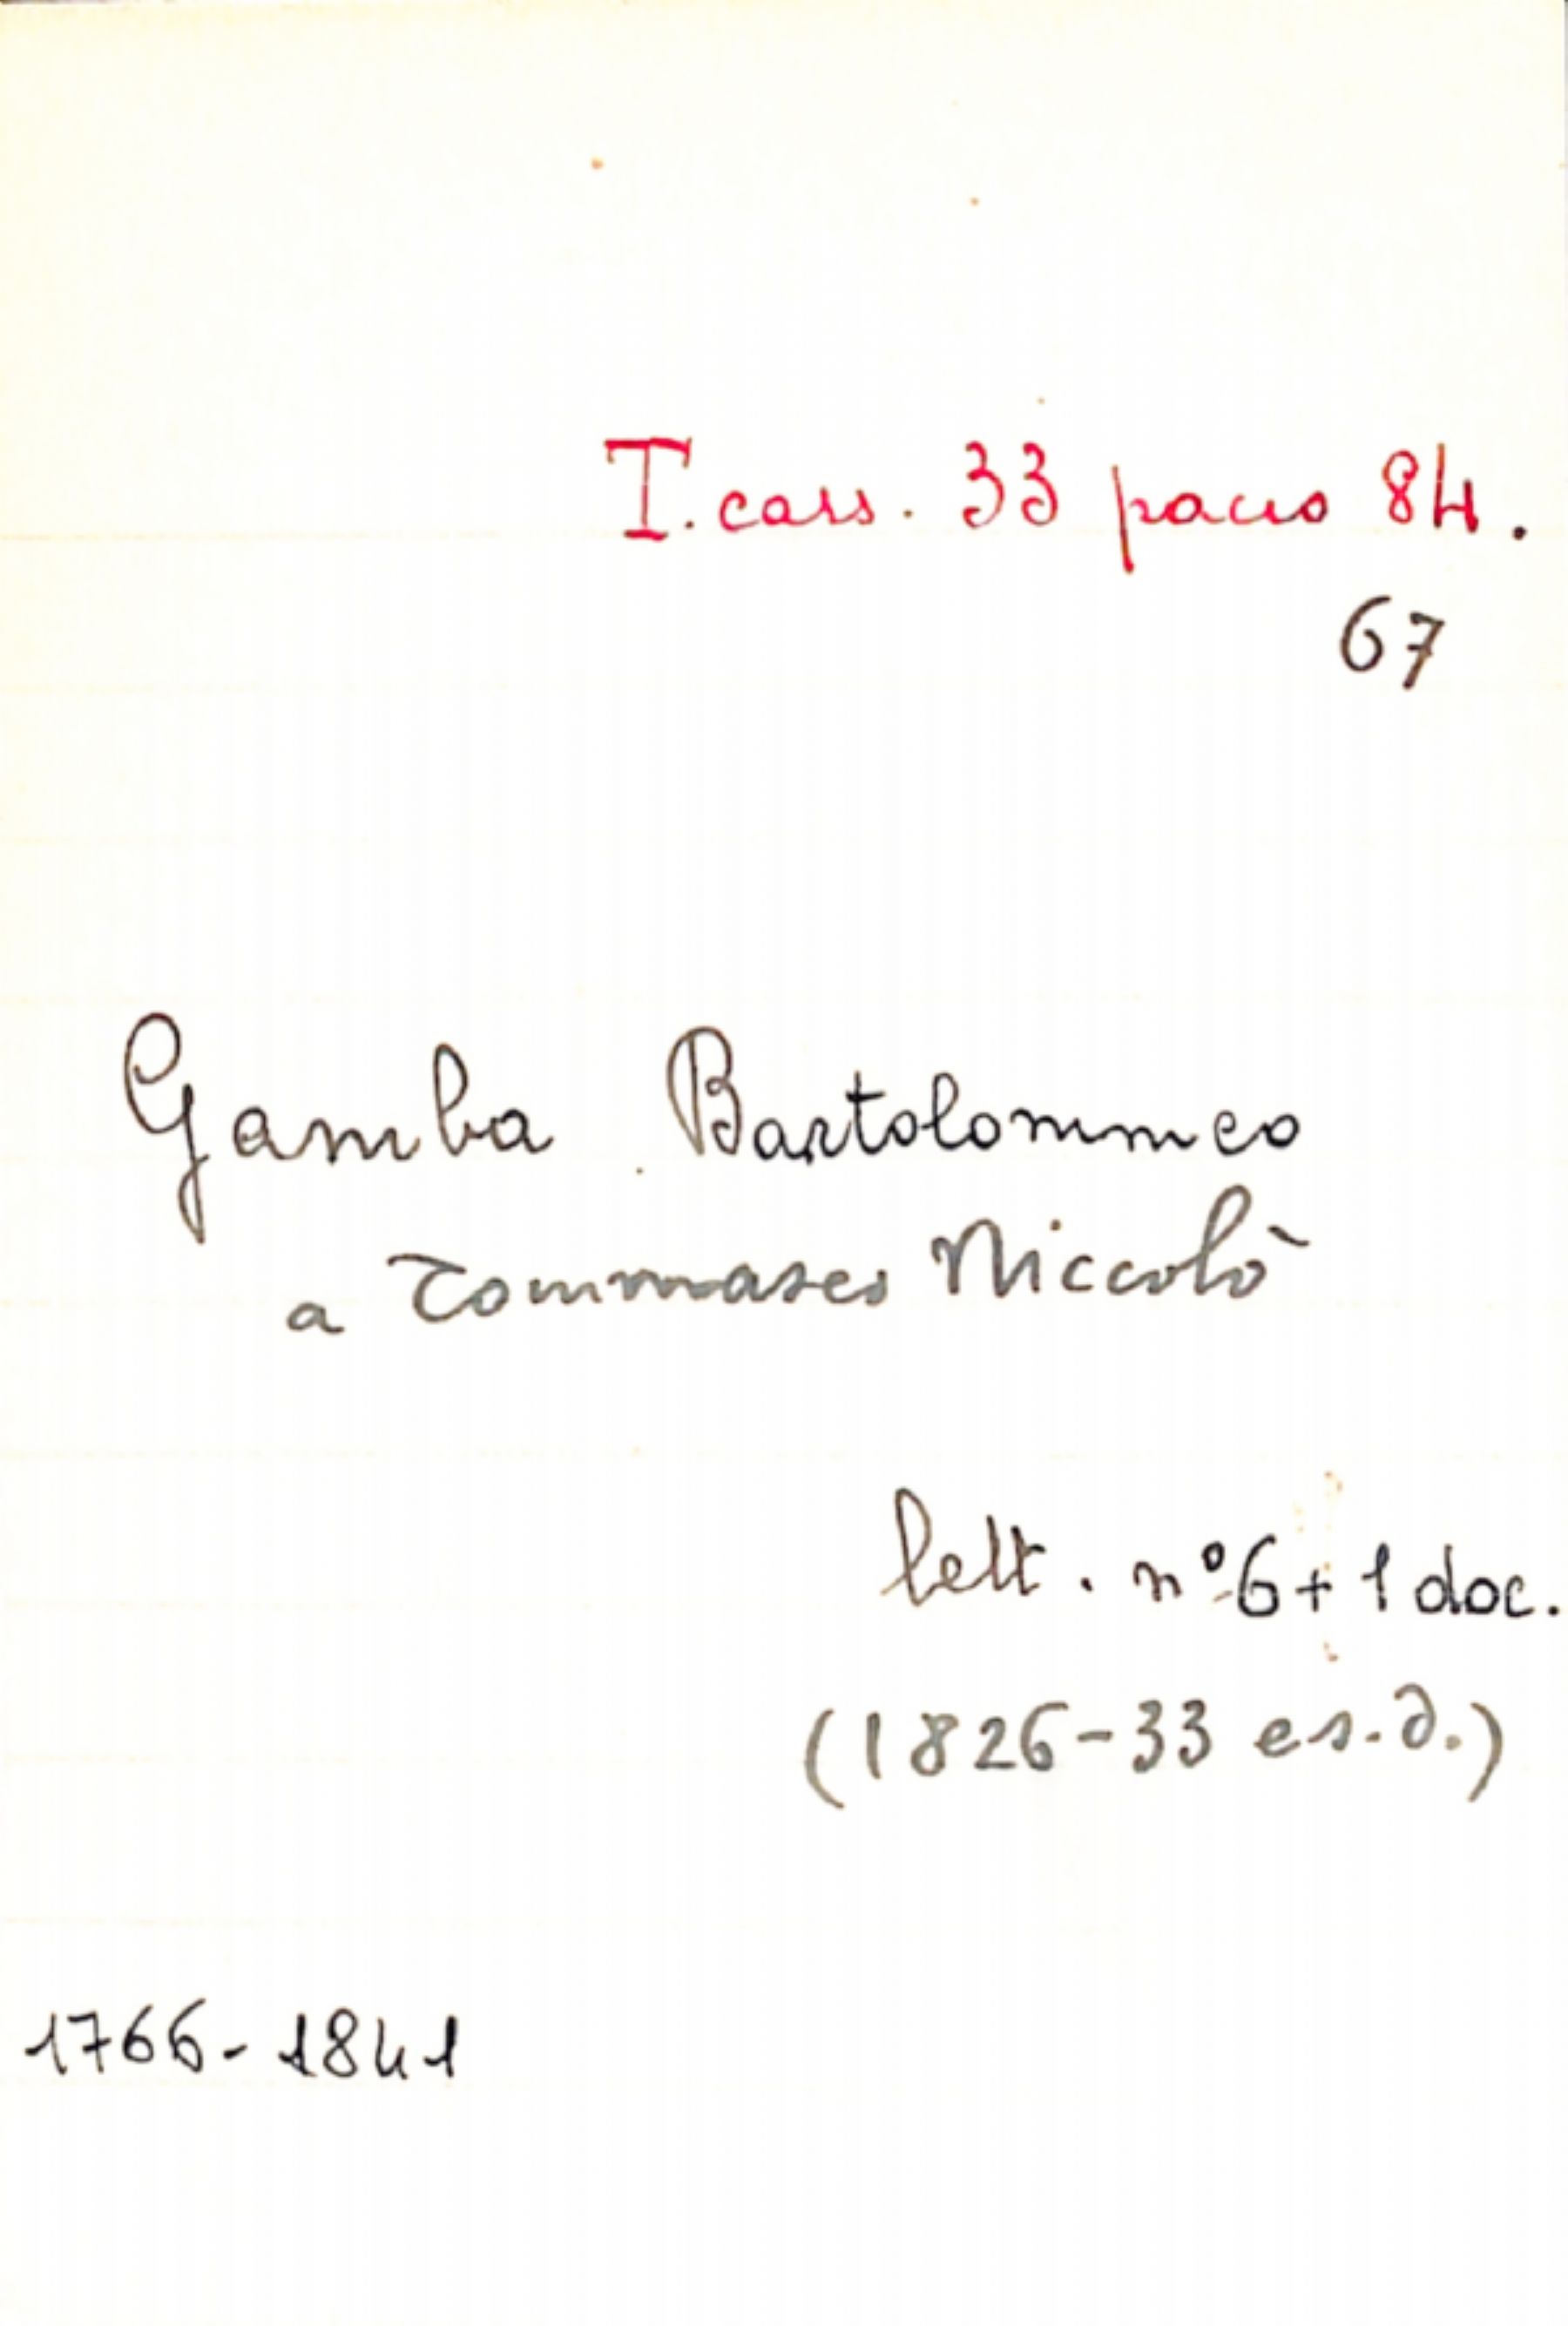 T. cass. 33 pacco 84.
67
Gamba Bartolommeo
a Tommaseo Niccolò
lett. n° 6 + 1 doc.
(1826-33 e s.d.)
1766-1841